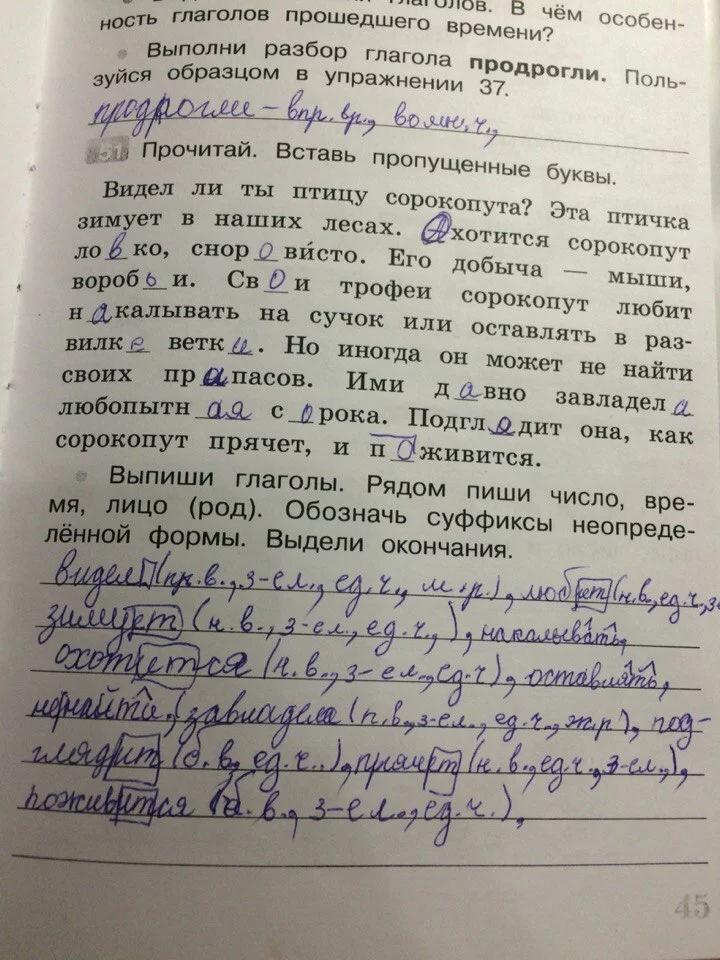 глаголов. В чём особен-
ность глаголов прошедшего времени?
Выполни разбор глагола продрогли. Поль-
зуйся образцом в упражнении 37.
продрогли – впр. вр., во мн. ч.,
51 Прочитай. Вставь пропущенные буквы.
Видел ли ты птицу сорокопута? Эта птичка
зимует в наших лесах. Ахотится сорокопут
ловко, сноровисто. Его добыча — мыши,
воробьи. Свои трофеи сорокопут любит
накалывать на сучок или оставлять в раз-
вилке ветки. Но иногда он может не найти
своих прапасов. Ими давно завладела
любопытная сорока. Подглядит она, как
сорокопут прячет, и поживится.
Выпиши глаголы. Рядом пиши число, вре-
мя, лицо (род). Обозначь суффиксы неопреде-
лённой формы. Выдели окончания.
видел (пр.в., 3-ел., ед.ч., м.р.), любет (н.в., ед.ч., 3
зимует (н.в., 3-ел., ед.ч., ), накалывать,
охотиется (н.в., 3-ел., ед.ч), оставлять,
не найти, (завладела (п.в, 3-ел., ед.ч., ж.р), под-
глядит (б.в, ед.ч..), прячет (н.в., ед.ч., 3-ел.,),
поживится (б.в., 3-ел., ед.ч.),
45